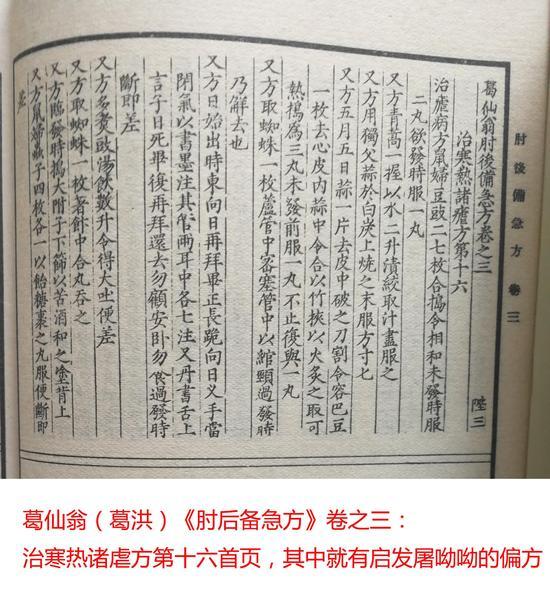 肘後備急方 卷三
葛仙翁肘後備急方卷之三 陞三
治寒熱諸瘧方第十六
治瘧病方鼠婦豆豉二七枚合搗令相和未發時服
二丸欲發時服一丸
又方青蒿一握以水二升漬絞取汁盡服之
又方用獨父蒜於白炭上燒之末服方寸匕
又方五月五日蒜一片去皮中破之刀割令容巴豆
一枚去心皮內蒜中令合以竹挾以火炙之取可
熱搗爲三丸未發前服一丸不止復與一丸
又方取蜘蛛一枚蘆管中密塞管中以綰頸過發時
乃解去也
又方日始出時東向日再拜畢正長跪向日叉手當
閉氣以書墨注其管兩耳中各七注又丹書舌上
言子日死畢復再拜還去勿顧安卧勿食過發時
斷即差
又方多煮豉湯飲數升令得大吐便差
又方取蜘蛛一枚著飯中合丸吞之
又方臨發時搗大附子下篩以苦酒和之塗背上
又方鼠婦蟲子四枚各一以飴糖裹之丸服便斷即
差
葛仙翁（葛洪）《肘后备急方》卷之三：
治寒热诸虐方第十六首页，其中就有启发屠呦呦的偏方